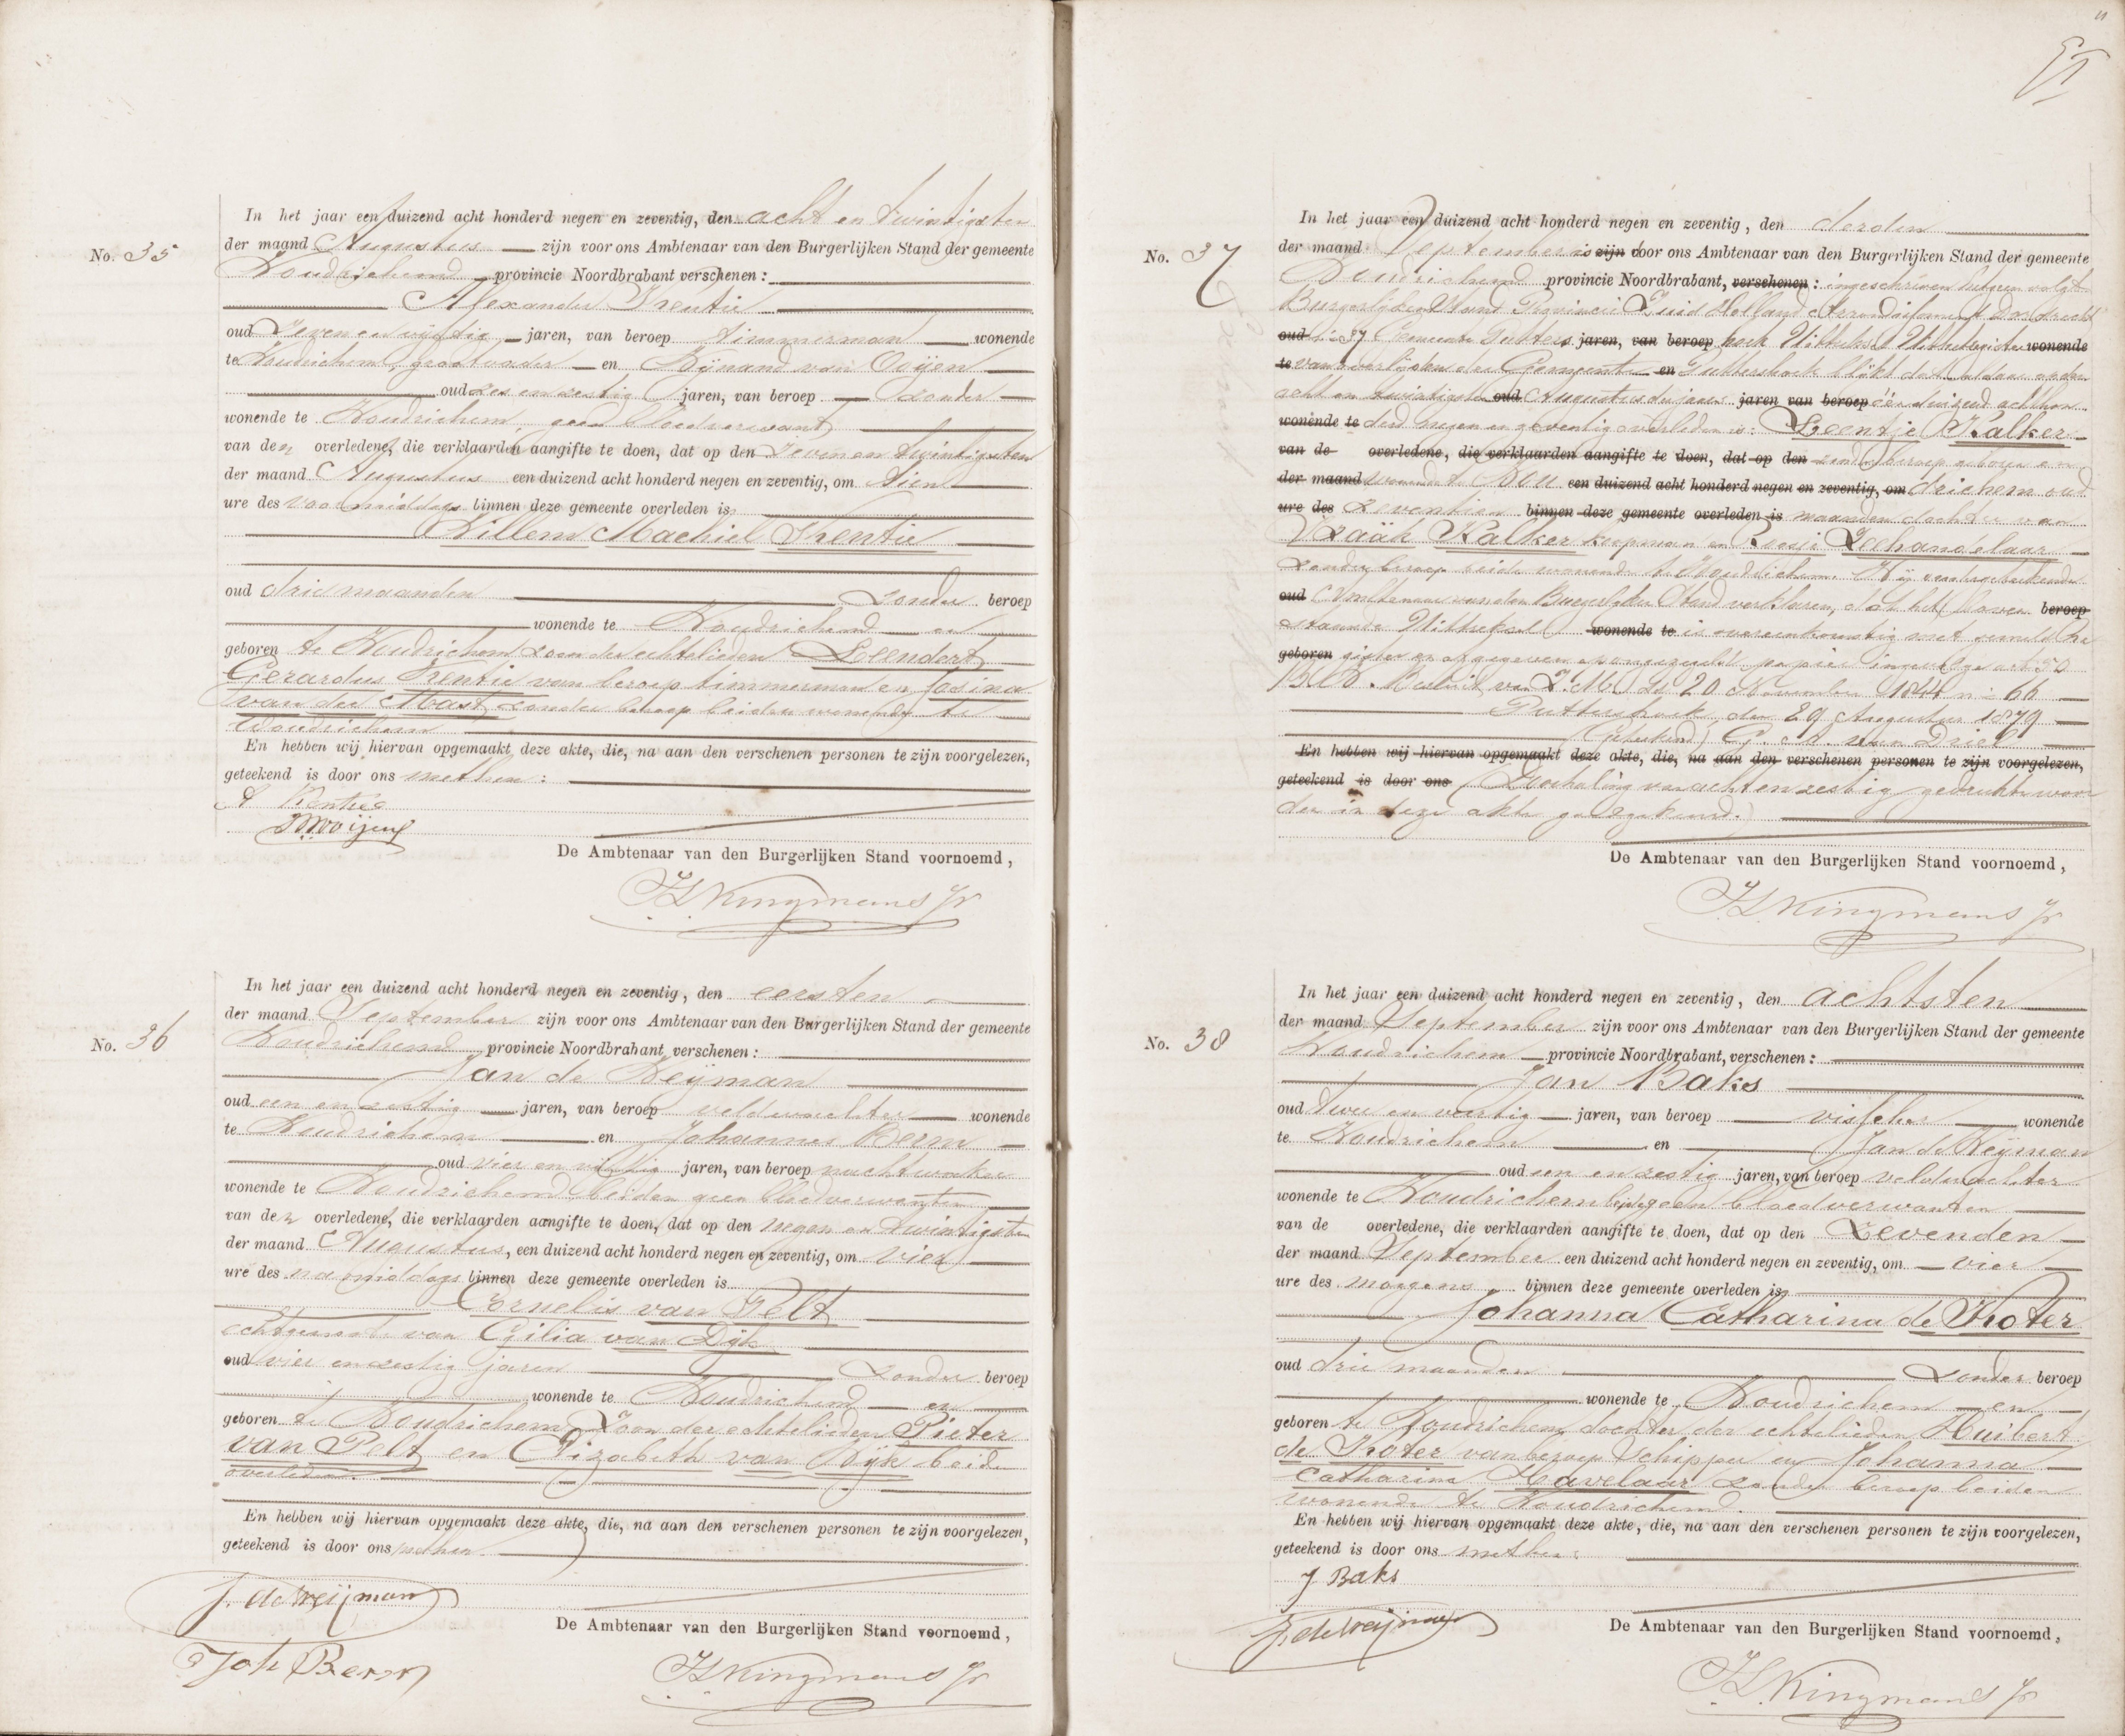 No. 35
In het jaar een duizend acht honderd negen en zeventig, den acht en twintigsten
der maand Augustus zijn voor ons Ambtenaar van den Burgerlijken Stand der gemeente
Woudrichem provincie Noordbrabant verschenen:
Alexander Krentie
oud zeven en vijftig jaren, van beroep timmerman wonende
te Woudrichem, grootvader en Wijnand van Ooijen
oud zes en zestig jaren, van beroep zonder
wonende te Woudrichem, geen bloedverwant
van den overledene, die verklaarden aangifte te doen, dat op den zeven en twintigsten
der maand Augustus een duizend acht honderd negen en zeventig, om tien
ure des voormiddags binnen deze gemeente overleden is
Willem Machiel Krentie
oud drie maanden zonder beroep
wonende te Woudrichem en
geboren te Woudrichem zoon der echtelieden Leendert
Gerardus Krentie van beroep timmerman en Josina
van der Mast zonder beroep beiden wonende te
Woudrichem
En hebben wij hiervan opgemaakt deze akte, die, na aan den verschenen personen te zijn voorgelezen,
geteekend is door ons met hen:
A Krentie
De Ambtenaar van den Burgerlijken Stand voornoemd,
Kingmans Jr
No. 36
In het jaar een duizend acht honderd negen en zeventig, den eersten
der maand September zijn voor ons Ambtenaar van den Burgerlijken Stand der gemeente
Woudrichem provincie Noordbrabant verschenen:
Jan de Weijman
oud een en zestig jaren, van beroep veldwachter wonende
te Woudrichem en Johannes Berm
oud vier en vijftig jaren, van beroep nachtwaker
wonende te Woudrichem beiden geen bloedverwanten
van den overledene, die verklaarden aangifte te doen, dat op den negen en twintigsten
der maand Augustus, een duizend acht honderd negen en zeventig, om vier
ure des namiddags binnen deze gemeente overleden is
Cornelis van Pelt
echtgenoot van Gilia van Dijk
oud vier en zestig jaren zonder beroep
wonende te Woudrichem en
geboren te Woudrichem Zoon der echtelieden Pieter
van Pelt en Elizabeth van Wijk beide
overleden.
En hebben wij hiervan opgemaakt deze akte, die, na aan den verschenen personen te zijn voorgelezen,
geteekend is door ons met hen
J. de Weijman
Joh Berm
De Ambtenaar van den Burgerlijken Stand voornoemd,
Kingmans Jr
No. 37
In het jaar een duizend acht honderd negen en zeventig, den derden
der maand September is zijn door ons Ambtenaar van den Burgerlijken Stand der gemeente
Woudrichem provincie Noordbrabant, verschenen: ingeschreven hetgeen volgt:
Burgerlijken Stand Provincie Zuid Holland Arrondissement Dordrecht
oud No 37 Gemeente Putters jaren, van beroep hoek Uittreksel Uit het register wonende
te van overlijden der Gemeente en Puttershoek blijkt dat aldaar op den
acht en twintigsten oud Augustus des jaars jaren van beroep één duizend achthon
wonende te derd negen en zeventig overleden is: Leentje Kalker
van de overledene, die verklaarden aangifte te doen, dat op den zonder beroep geboren en
der maand wonende te Wou een duizend acht honderd negen en zeventig, om drichem oud
ure des zeventien binnen deze gemeente overleden is maanden dochter van
Izaäk Kalker koopman en Roosje Zeehandelaar
zonder beroep beide wonende te Woudrichem. Wij ondergeteekende
oud Ambtenaar van den Burgerlijken Stand verklaren, dat het boven beroep
staande Uittreksel wonende te is overeenkomstig met gemeld Re
geboren gister en afgegeven op ongezegeld papier ingevolge art 50
B.W. Besluit van Z.M. dd 20 November 1844 no 66
Puttershoek, den 29 Augustus 1879
(Geteekend) G. A. van Driel
En hebben wij hiervan opgemaakt deze akte, die, na aan den verschenen personen te zijn voorgelezen,
geteekend is door ons (Doorhaling van acht en zestig gedrukte woor
den in deze akte goedgekeurd.)
De Ambtenaar van den Burgerlijken Stand voornoemd,
Kingmans Jr
No. 38
In het jaar een duizend acht honderd negen en zeventig, den achtsten
der maand September zijn voor ons Ambtenaar van den Burgerlijken Stand der gemeente
Woudrichem provincie Noordbrabant, verschenen:
Jan Baks
oud twee en veertig jaren, van beroep visscher wonende
te Woudrichem en Jan de Weijman
oud een en zestig jaren, van beroep veldwachter
wonende te Woudrichem beiden geen bloedverwanten
van de overledene, die verklaarden aangifte te doen, dat op den Zevenden
der maand September een duizend acht honderd negen en zeventig, om vier
ure des morgens binnen deze gemeente overleden is
Johanna Catharina de Koter
oud drie maanden zonder beroep
wonende te Woudrichem en
geboren te Woudrichem, dochter der echtelieden Huibert
de Koter van beroep Schipper en Johanna
Catharina Havelaar zonder beroep beiden
wonende te Woudrichem.
En hebben wij hiervan opgemaakt deze akte, die, na aan den verschenen personen te zijn voorgelezen,
geteekend is door ons met hen:
J Baks
J. de Weijman
De Ambtenaar van den Burgerlijken Stand voornoemd,
Kingmans Jr